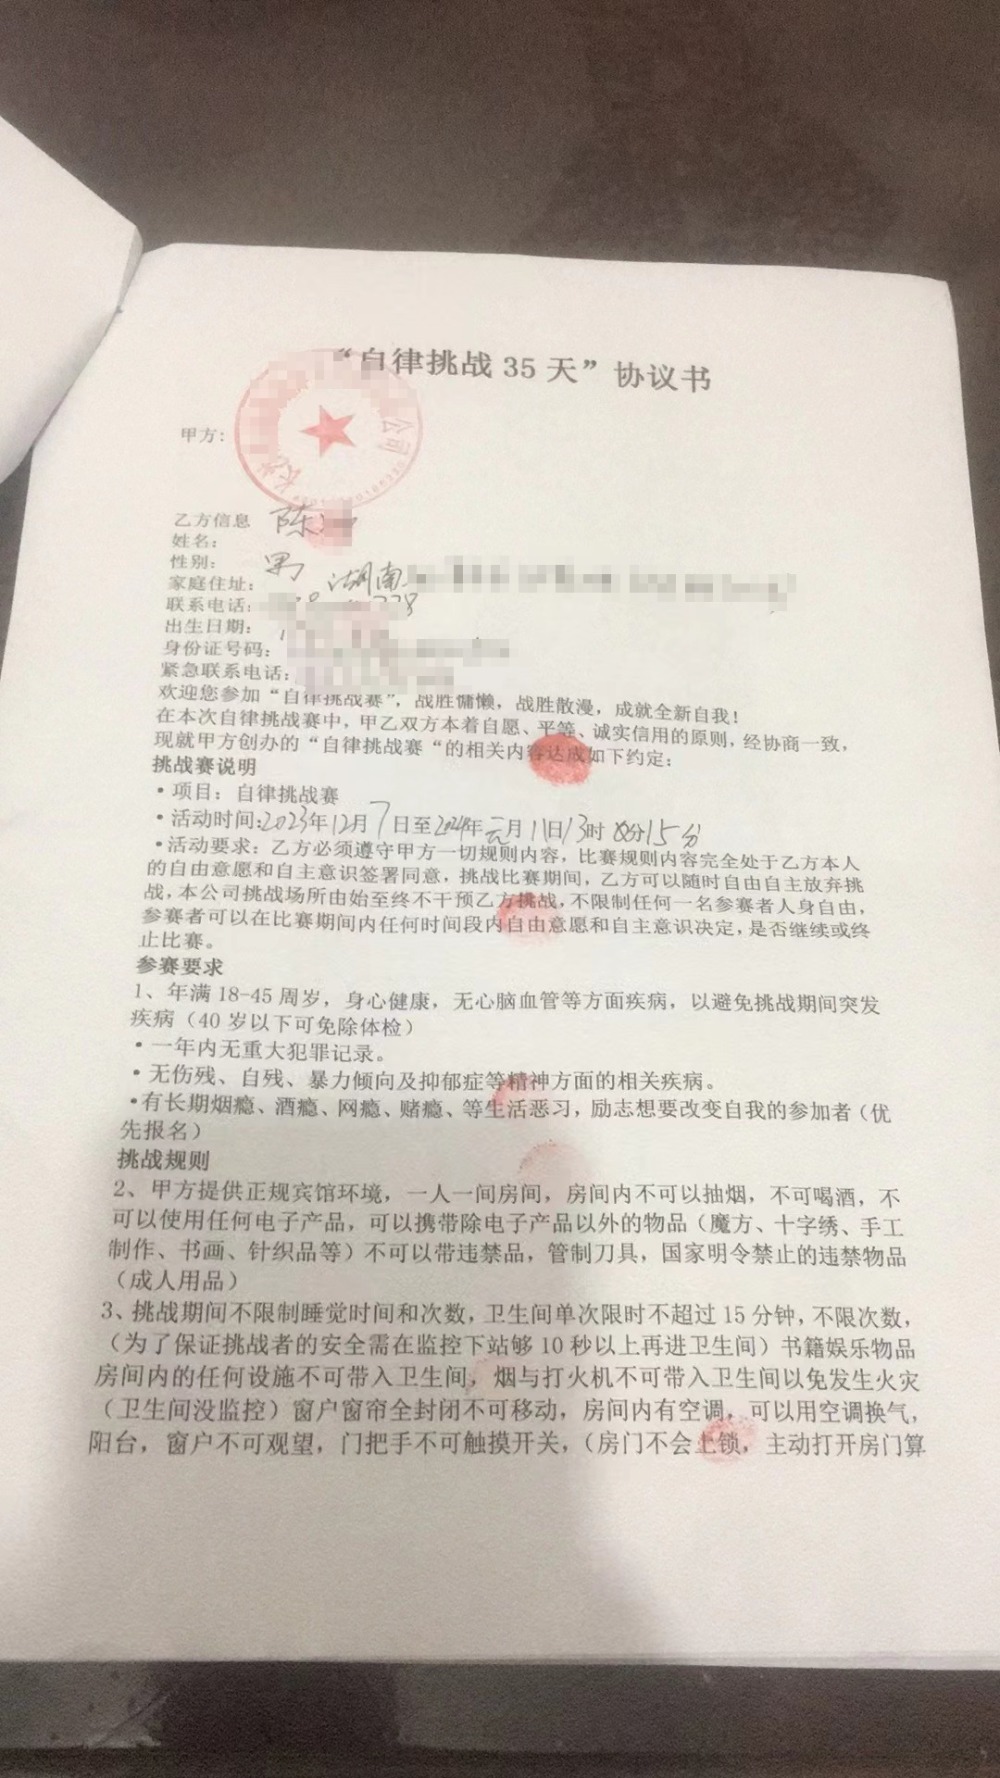 “自律挑战 35 天”协议书
甲方:
公司
乙方信息
姓名: 陈
性别: 男
家庭住址: 湖南
联系电话:
出生日期:
身份证号码:
紧急联系电话:
欢迎您参加“自律挑战赛”，战胜慵懒，战胜散漫，成就全新自我!
在本次自律挑战赛中，甲乙双方本着自愿、平等、诚实信用的原则，经协商一致，
现就甲方创办的“自律挑战赛“的相关内容达成如下约定:
挑战赛说明
·项目: 自律挑战赛
·活动时间:2023年12月7日至2024年元月11日13时 分15分
·活动要求: 乙方必须遵守甲方一切规则内容，比赛规则内容完全处于乙方本人
的自由意愿和自主意识签署同意，挑战比赛期间，乙方可以随时自由自主放弃挑
战，本公司挑战场所由始至终不干预乙方挑战，不限制任何一名参赛者人身自由，
参赛者可以在比赛期间内任何时间段内自由意愿和自主意识决定，是否继续或终
止比赛。
参赛要求
1、年满 18-45 周岁，身心健康，无心脑血管等方面疾病，以避免挑战期间突发
疾病（40 岁以下可免除体检）
·一年内无重大犯罪记录。
·无伤残、自残、暴力倾向及抑郁症等精神方面的相关疾病。
·有长期烟瘾、酒瘾、网瘾、赌瘾、等生活恶习，励志想要改变自我的参加者（优
先报名）
挑战规则
2、甲方提供正规宾馆环境，一人一间房间，房间内不可以抽烟，不可喝酒，不
可以使用任何电子产品，可以携带除电子产品以外的物品（魔方、十字绣、手工
制作、书画、针织品等）不可以带违禁品，管制刀具，国家明令禁止的违禁物品
（成人用品）
3、挑战期间不限制睡觉时间和次数，卫生间单次限时不超过 15 分钟，不限次数，
（为了保证挑战者的安全需在监控下站够 10 秒以上再进卫生间）书籍娱乐物品
房间内的任何设施不可带入卫生间，烟与打火机不可带入卫生间以免发生火灾
（卫生间没监控）窗户窗帘全封闭不可移动，房间内有空调，可以用空调换气，
阳台，窗户不可观望，门把手不可触摸开关，（房门不会上锁，主动打开房门算